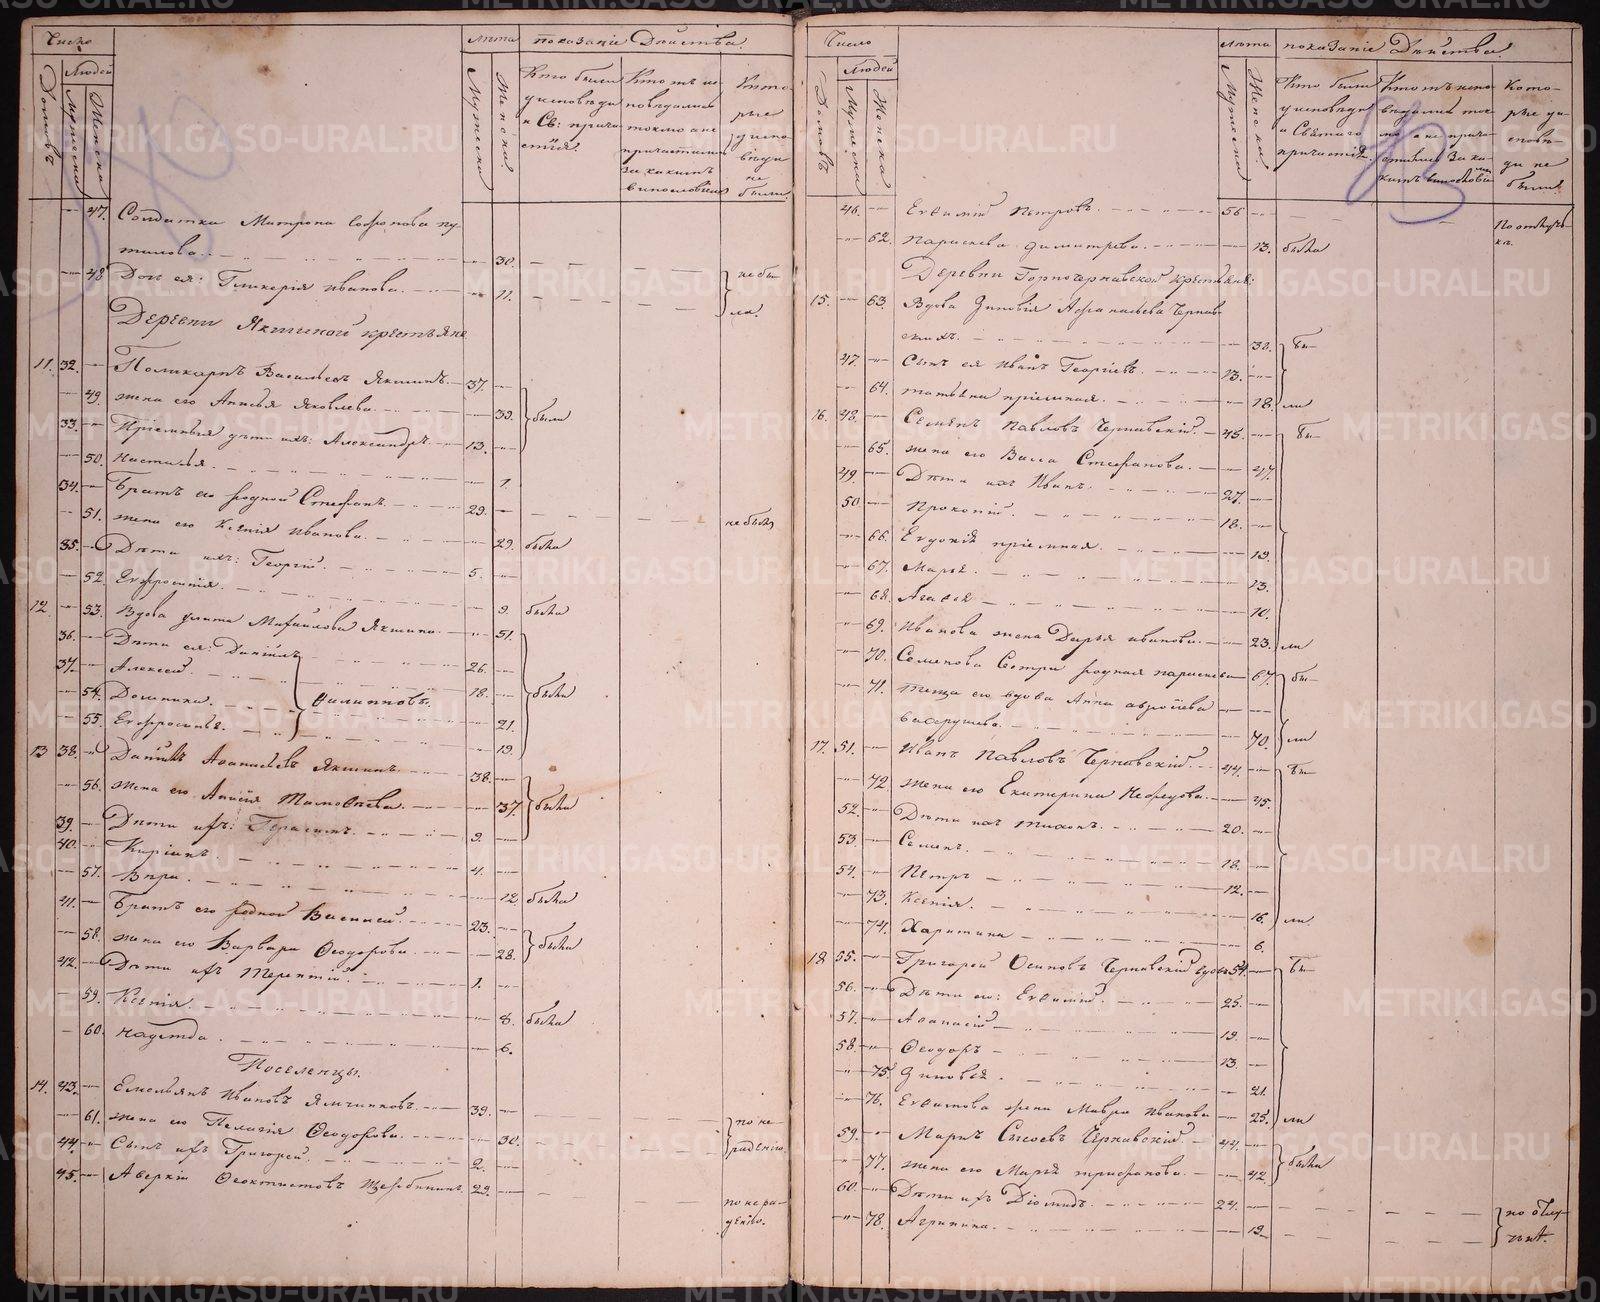 Число
Домовъ
Людей
Мужеска
Женска
Лѣта
Мужеска
Женска
показаніе Дѣйства
Кто были
у исповѣди
и Св: прича-
стія.
Кто исповѣдался
токмо а не
причастился
за какимъ
винословіемъ
Которые
у исповѣди
не были
47. Солдатка Матрона Софронова Пу-
тилова 30.
48 Дочь ея: Гликерія Иванова 11. не бы-
ла.
Деревни Якшиной крестьяне
11. 32. Поликарпъ Васильевъ Якшинъ 37.
49. жена его Анисья Яковлева 39. были
33. Пріемныя дѣти ихъ: Александръ 13.
50. Настасья 1.
34. Братъ его родной Стефанъ 29. не былъ
51. жена его Ксенія Иванова 29. была
35. Дѣти ихъ: Георгій 5.
52. Евфросинія 9. была
12. 53. Вдова Улита Михайлова Якшина 51.
36. Дѣти ея: Даніилъ 26.
37. Алексей 18. Филипповъ были
54. Домника 21.
55. Евфросинья 19.
13 38. Даніилъ Афанасьевъ Якшинъ 38.
56. жена его Анисія Тимофеева 37. были
39. Дѣти ихъ: Герасимъ 9.
40. Киріакъ 4.
57. Вѣра 12. была
41. Братъ его родной Василей 23.
58. жена его Варвара Ѳеодорова 28. были
42. Дѣти ихъ Терентій 1.
59. Ксенія 8. была
60. Надежда 6.
Поселенцы.
14. 43. Емельянъ Ивановъ Ямчиковъ 39.
61. жена его Пелагія Ѳеодорова 30. по не-
радѣнію
44. Сынъ ихъ Григорей 2.
45. Аверкій Ѳеоктистовъ Щербининъ 29. по нера-
дѣнію.
Число
Домовъ
Людей
Мужеска
Женска
Лѣта
Мужеска
Женска
показаніе Дѣйства.
Кто были
у исповѣди
и Святаго
причастія
Кто исповѣдался
токмо а не прича-
стился за ка-
кимъ винословіемъ
Кото-
рые у и-
сповѣ-
ди не
были
46. Евфимій Петровъ 56 По отлуч-
кѣ.
62. Параскева Димитрева 13. была
Деревни Горночернавской крестьяне:
15. 63. Вдова Зиновія Афанасьева Чернав-
скихъ 30. бы-
47. Сынъ ея Иванъ Георгіевъ 13.
64. Татьяна пріемная 18. ли
16. 48. Семенъ Павловъ Чернавскій 45. бы-
65. жена его Васса Стефанова 47.
49. Дѣти ихъ Иванъ 27.
50 Прокопій 18.
66. Евдокія пріемная 19.
67. Марья 13.
68. Агафья 10.
69. Иванова жена Дарья Иванова 23. ли
70. Семенова сестра родная Параскева 67. бы-
71. теща его вдова Анна
Вахрушева 70. ли
17. 51. Иванъ Павловъ Чернавскій 44. бы-
72. жена его Екатерина Нефедова 45.
52. Дѣти ихъ Тихонъ 20.
53. Семенъ 18.
54. Петръ 12.
73. Ксенія 16. ли
74. Харитина 6.
18 55. Григорей Осиповъ Чернавскій вдовъ 54. бы-
56. Дѣти его: Евфимій 25.
57. Афанасій 19.
58. Ѳеодоръ 13.
75. Зиновья 21.
76. Евфимова жена Мавра Иванова 25. ли
59. Маркъ Сысоевъ Чернавскій 44.
77. жена его Марья Трифонова 42. были
60. Дѣти ихъ Діомидъ 24.
78. Агрипина 19. по отлу-
чкѣ.
METRIKI.GASO-URAL.RU